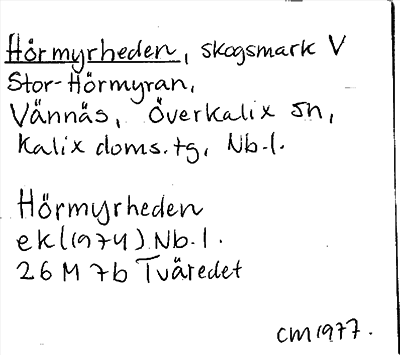 Hörmyrheden, skogsmark V
Stor-Hörmyran,
Vännäs, Överkalix sn,
Kalix doms.tg, Nb.l.
Hörmyrheden
ek(1974) Nb.l.
26 M 7b Tväredet
CM 1977.